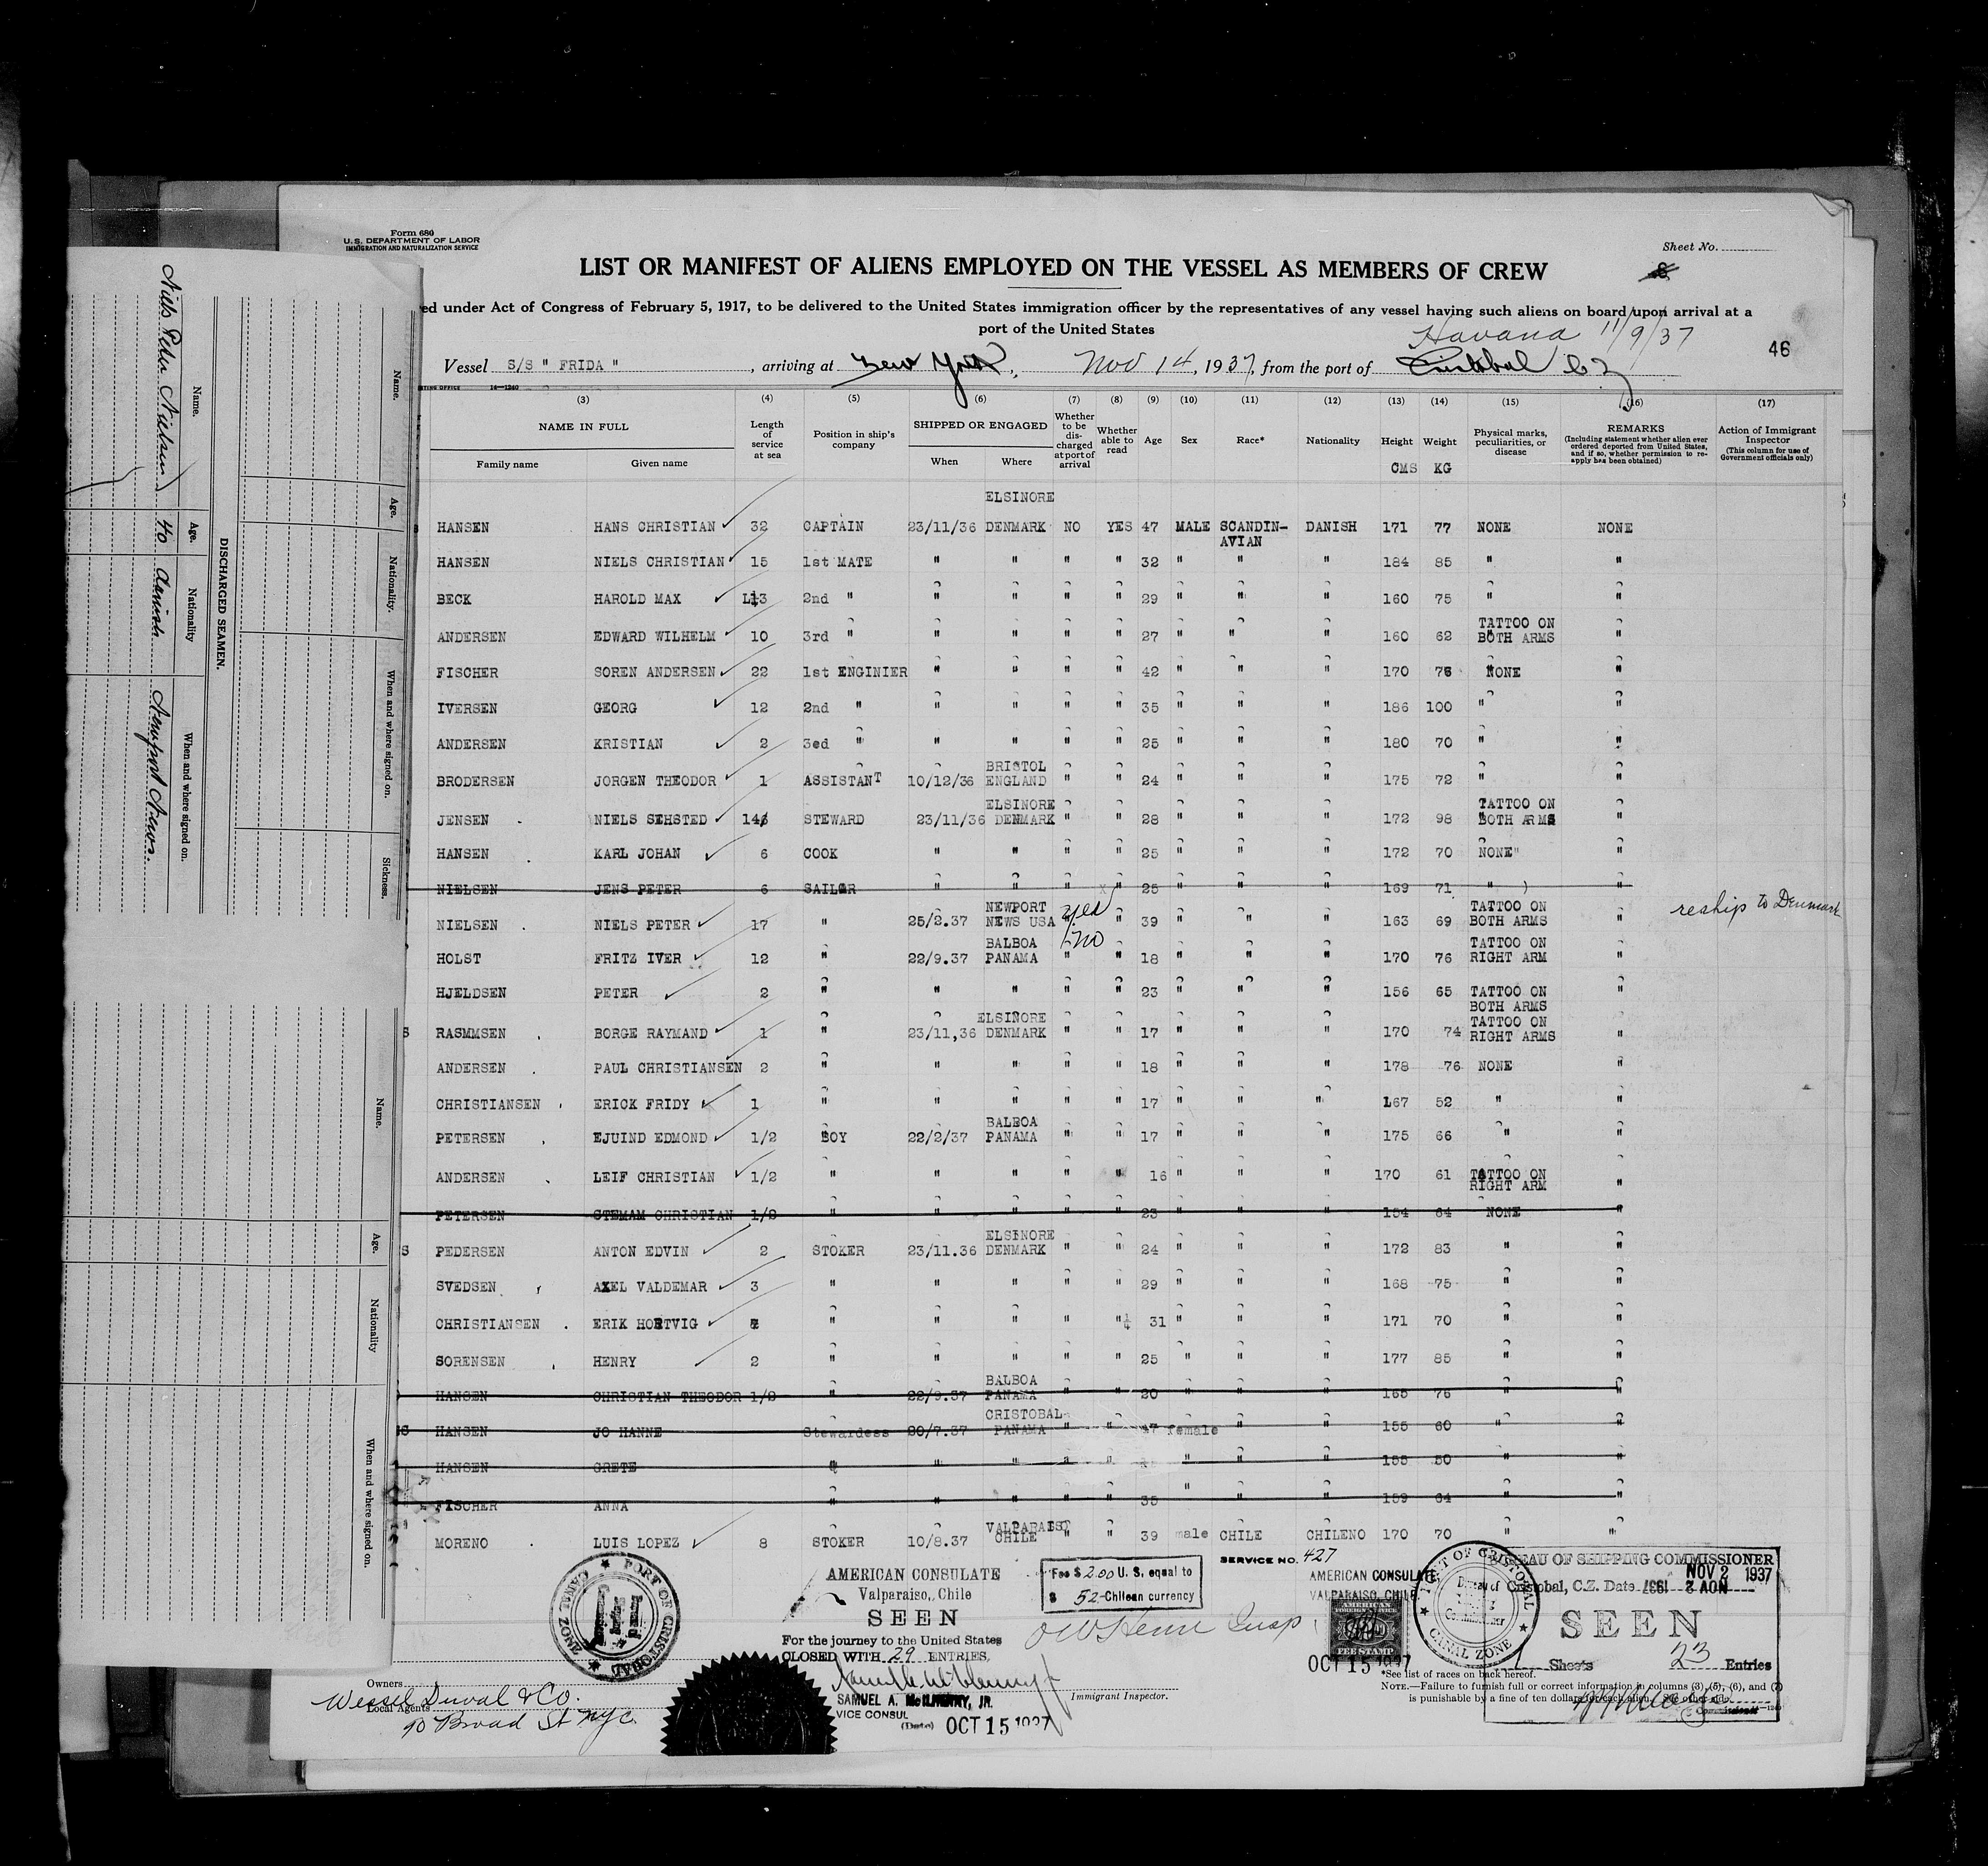 Form 680
U.S. DEPARTMENT OF LABOR
IMMIGRATION AND NATURALIZATION SERVICE
Sheet No.
8
LIST OR MANIFEST OF ALIENS EMPLOYED ON THE VESSEL AS MEMBERS OF CREW
ed under Act of Congress of February 5, 1917, to be delivered to the United States immigration officer by the representatives of any vessel having such aliens on board upon arrival at a
port of the United States
Havana 11/9/37
46
Vessel S/S " FRIDA ", arriving at New York, Nov 14, 1937, from the port of Cristobal C Z
TING OFFICE 14—1240
(3) (4) (5) (6) (7) (8) (9) (10) (11) (12) (13) (14) (15) (16) (17)
NAME IN FULL
Family name Given name
Length of service at sea
Position in ship's company
SHIPPED OR ENGAGED
When Where
Whether to be discharged at port of arrival
Whether able to read
Age Sex Race* Nationality Height Weight
CMS KG
Physical marks, peculiarities, or disease
REMARKS
(Including statement whether alien ever ordered deported from United States, and if so, whether permission to reapply has been obtained)
Action of Immigrant Inspector
(This column for use of Government officials only)
ELSINORE
HANSEN HANS CHRISTIAN 32 CAPTAIN 23/11/36 DENMARK NO YES 47 MALE SCANDIN- DANISH 171 77 NONE NONE
AVIAN
HANSEN NIELS CHRISTIAN 15 1st MATE " " " " 32 " " " 184 85 " "
BECK HAROLD MAX 13 2nd " " " " " 29 " " " 160 75 " "
TATTOO ON
ANDERSEN EDWARD WILHELM 10 3rd " " " " " 27 " " " 160 62 BOTH ARMS "
FISCHER SOREN ANDERSEN 22 1st ENGINIER " " " " 42 " " " 170 76 NONE "
IVERSEN GEORG 12 2nd " " " " " 35 " " " 186 100 " "
ANDERSEN KRISTIAN 2 3ed " " " " " 25 " " " 180 70 " "
BRISTOL
BRODERSEN JORGEN THEODOR 1 ASSISTANT 10/12/36 ENGLAND " " 24 " " " 175 72 " "
ELSINORE TATTOO ON
JENSEN NIELS SEHSTED 14 STEWARD 23/11/36 DENMARK " " 28 " " " 172 98 BOTH ARMS "
HANSEN KARL JOHAN 6 COOK " " " " 25 " " " 172 70 NONE" "
NIELSEN JENS PETER 6 SAILOR " " " 25 " " " 169 71 " "
NEWPORT yes TATTOO ON reship to Denmark
NIELSEN NIELS PETER 17 " 25/2.37 NEWS USA " " 39 " " " 163 69 BOTH ARMS "
BALBOA no TATTOO ON
HOLST FRITZ IVER 12 " 22/9.37 PANAMA " " 18 " " " 170 76 RIGHT ARM "
HJELDSEN PETER 2 " " " " " 23 " " " 156 65 TATTOO ON "
BOTH ARMS
ELSINORE TATTOO ON
S RASMMSEN BORGE RAYMAND 1 " 23/11,36 DENMARK " " 17 " " " 170 74 RIGHT ARMS "
ANDERSEN PAUL CHRISTIANSEN 2 " " " " " 18 " " " 178 76 NONE "
CHRISTIANSEN ERICK FRIDY 1 " " " " " 17 " " " 167 52 " "
BALBOA
PETERSEN EJUIND EDMOND 1/2 BOY 22/2/37 PANAMA " " 17 " " " 175 66 " "
ANDERSEN LEIF CHRISTIAN 1/2 " " " " " 16 " " " 170 61 TATTOO ON
RIGHT ARM "
PETERSEN STEMAM CHRISTIAN 1/2 " " " " " 23 " " " 184 64 NONE "
ELSINORE
S PEDERSEN ANTON EDVIN 2 STOKER 23/11.36 DENMARK " " 24 " " " 172 83 " "
SVEDSEN AXEL VALDEMAR 3 " " " " " 29 " " " 168 75 " "
CHRISTIANSEN ERIK HORTVIG " " " " " 31 " " " 171 70 " "
SORENSEN HENRY 2 " " " " " 25 " " " 177 85 " "
BALBOA
HANSEN CHRISTIAN THEODOR 1/2 " 22/9.37 PANAMA " " 20 " " " 165 76 " "
CRISTOBAL
HANSEN JO HANNE Stewardess 20/7.37 PANAMA " " 47 female " " 155 60 " "
HANSEN GRETE " " " " " " " " 155 50 " "
FISCHER ANNA " " " " " 35 " " " 159 64 " "
VALPARAISO
MORENO LUIS LOPEZ 8 STOKER 10/8.37 CHILE " " 39 male CHILE CHILENO 170 70 " "
PORT OF CRISTOBAL
CANAL ZONE
AMERICAN CONSULATE
Valparaiso, Chile
SEEN
For the journey to the United States
CLOSED WITH 29 ENTRIES
SAMUEL A. McILHENNY, JR.
VICE CONSUL
(Date) OCT 15 1937
Fee $ 2.00 U. S, equal to
$ 52- Chilean currency
Insp
Immigrant Inspector.
SERVICE NO. 427
AMERICAN CONSULATE
VALPARAISO, CHILE
AMERICAN
FOREIGN SERVICE
FEE STAMP
OCT 15 1937
PORT OF CRISTOBAL
CANAL ZONE
BUREAU OF SHIPPING COMMISSIONER
NOV 2 1937
Cristobal, C.Z. Date NOV 2 1937
SEEN
1 Sheets 23 Entries
Commissioner
*See list of races on back hereof.
NOTE.—Failure to furnish full or correct information in columns (3), (5), (6), and (7)
is punishable by a fine of ten dollars for each alien. See other side.
Owners
Local Agents
Wessel Duval & Co.
90 Broad St NYC
DISCHARGED SEAMEN.
Name. Age. Nationality When and where signed on.
Niels Peter Nielsen 40 danish Newport News.
Name. Age. Nationality. When and where signed on. Sickness.
Name. Age. Nationality When and where signed on.